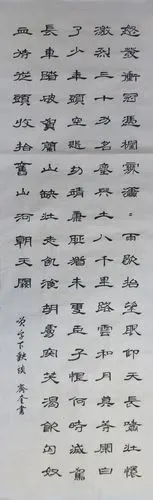 怒髮衝冠憑欄處瀟〻雨歇抬望眼仰天長嘯壯懷
激烈三十功名塵與土八千里路雲和月莫等閒白
了少年頭空悲切靖康恥猶未雪臣子恨何時滅駕
長車踏破賀蘭山缺壯志飢餐胡虜肉笑談渴飲匈奴
血待從頭收拾舊山河朝天闕